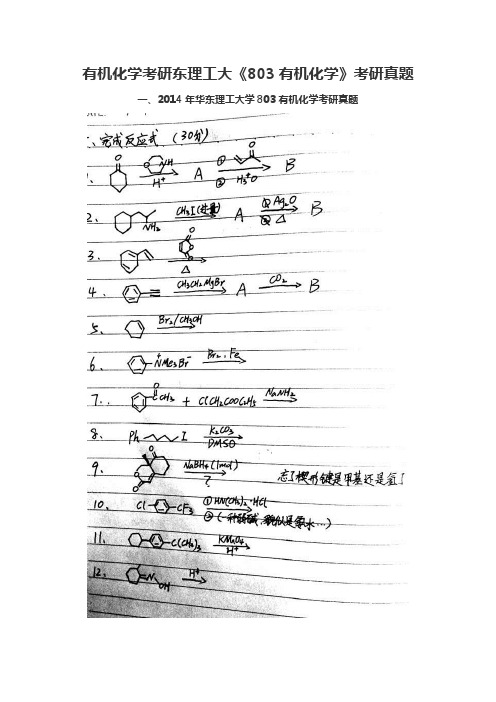 有机化学考研东理工大《803有机化学》考研真题
一、2014年华东理工大学803有机化学考研真题
一、完成反应式 (30分)
1、 O O NH H⁺ A ① O ② H₃⁺O B
2、 NH₂ CH₃I(过量) A ① Ag₂O ② △ B
3. O O O △
4. CH₃CH₂MgBr A CO₂ B
5. Br₂/CH₃OH
6. N⁺Me₃Br⁻ Br₂, Fe
7. O CCH₃ + ClCH₂COOC₂H₅ NaNH₂
8. Ph I K₂CO₃ DMSO
9. O O NaBH₄(1mol) ? 忘了楔形键是甲基还是氢了
10. Cl CF₃ ① HN(CH₃)₂·HCl ② (一种弱碱,貌似是氨水…)
11. C(CH₃)₃ KMnO₄ H⁺
12. N OH H⁺